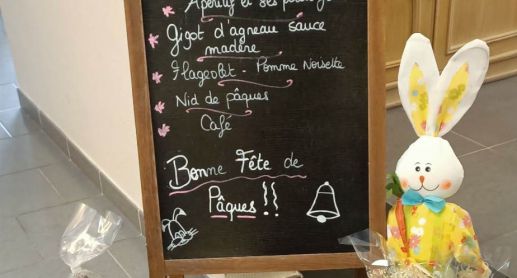 Apéritif et ses
Gigot d'agneau sauce
madère
Flageolet - Pomme Noisette
Nid de pâques
Café
Bonne Fête de
Pâques !!